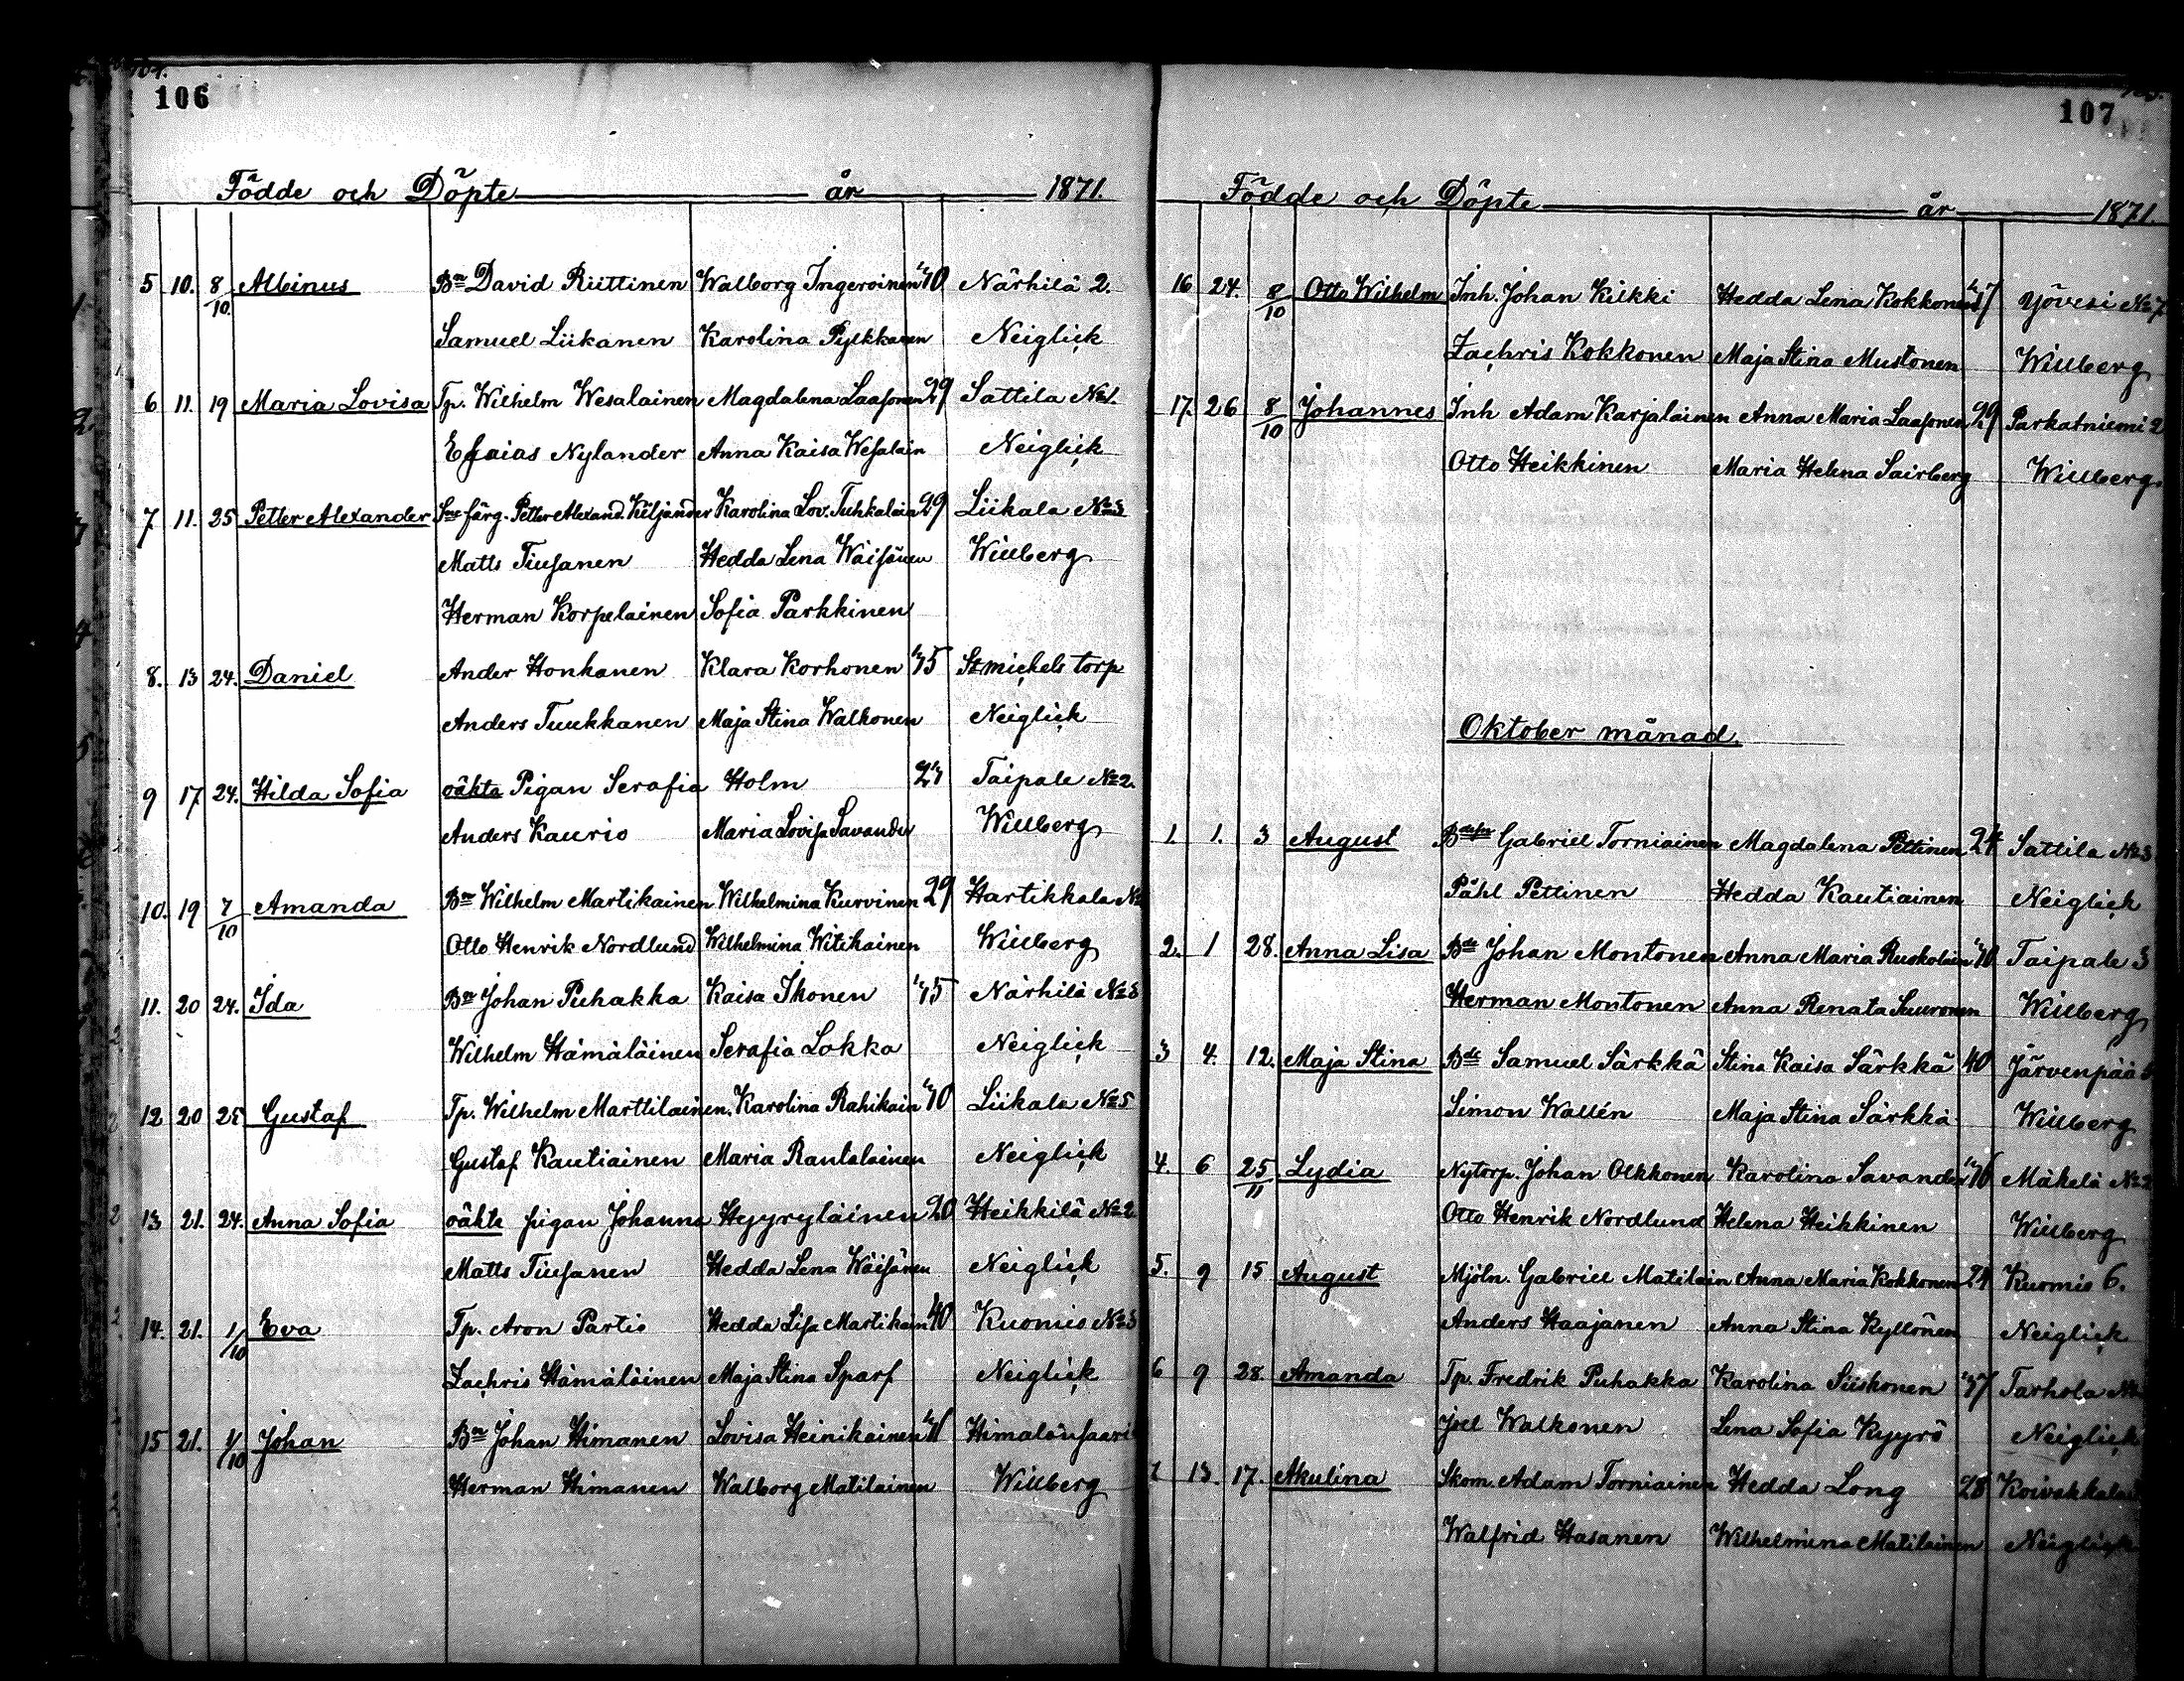 106
Födde och Döpte år 1871.
5 10. 8/10. Albinus Bn David Riittinen Walborg Ingeroinen 40 Närhilä 2.
Samuel Liikanen Karolina Pylkkanen Neiglick
6 11. 19 Maria Lovisa Tp. Wilhelm Wesalainen Magdalena Laasonen 29 Sattila No 1.
Esaias Nylander Anna Kaisa Wesalain Neiglick
7 11. 25 Petter Alexander färg. Petter Alexand. Kiljander Karolina Lov. Tuhkalain 29 Liikala No 3
Matts Tiusanen Hedda Lena Wäisänen Willberg
Herman Korpelainen Sofia Parkkinen
8. 13 24. Daniel Ander Honkanen Klara Korhonen 45 St michels torp
Anders Tuukkanen Maja Stina Walkonen Neiglick
9 17 24. Hilda Sofia oäkta Pigan Serafia Holm Taipale No 2.
Anders Kaurio Maria Lovisa Savander Willberg
10. 19 7/10 Amanda Bn Wilhelm Martikainen Wilhelmina Kurvinen 29 Hartikkala No
Otto Henrik Nordlund Wilhelmina Witikainen Willberg
11. 20 24. Ida Bn Johan Puhakka Kaisa Ikonen 45 Närhilä No 3
Wilhelm Hämäläinen Serafia Lokka Neiglick
12 20 25 Gustaf Tp. Wilhelm Marttilainen, Karolina Rahikain 40 Liikala No 5
Gustaf Kautiainen Maria Rantalainen Neiglick
13 21. 24. Anna Sofia oäkta pigan Johanna Hyyryläinen 20 Heikkilä No 2
Matts Tiusanen Hedda Lena Wäisänen Neiglick
14. 21. 1/10 Eva Tp. Aron Partio Hedda Lisa Martikain 40 Kuomio No 3
Zachris Hämäläinen Maja Stina Sparf Neiglick
15 21. 1/10 Johan Bn Johan Himanen Lovisa Heinikainen Himalansaari
Herman Himanen Walborg Matilainen Willberg
107
Födde och Döpte år 1871.
16 24. 8/10 Otto Wilhelm Inh. Johan Kilkki Hedda Lena Kokkonen Yövesi No 7
Zachris Kokkonen Maja Stina Mustonen Willberg
17. 26 8/10 Johannes Inh Adam Karjalainen Anna Maria Laasonen 29 Parkatniemi 2
Otto Heikkinen Maria Helena Sairberg Willberg.
Oktober månad.
1. 1. 3 August Gabriel Torniainen Magdalena Pettinen 24 Sattila No 3
Påhl Pettinen Hedda Kautiainen Neiglick
2. 1 28. Anna Lisa Bde Johan Montonen Anna Maria Ruokolain 40 Taipale 3
Herman Montonen Anna Renata Suuronen Willberg
3 4. 12. Maja Stina Bde Samuel Särkkä Stina Kaisa Särkkä 40 Järvenpää
Simon Wallén Maja Stina Särkkä Willberg
4. 6 25/11 Lydia Nytorp. Johan Olkkonen Karolina Savander Mäkelä No 2
Otto Henrik Nordlund Helena Heikkinen Willberg
5. 9 15 August Mjöln. Gabriel Matilain Anna Maria Kokkonen 24 Kuomio 6.
Anders Haajanen Anna Stina Kyllönen Neiglick
6 9 28. Amanda Tp. Fredrik Puhakka Karolina Siiskonen Tarhola No
Joel Walkonen Lena Sofia Kyyrö Neiglick
7 13. 17. Akulina Skom. Adam Torniainen Hedda Long 28 Koivakkala
Walfrid Hasanen Wilhelmina Matilainen Neiglick